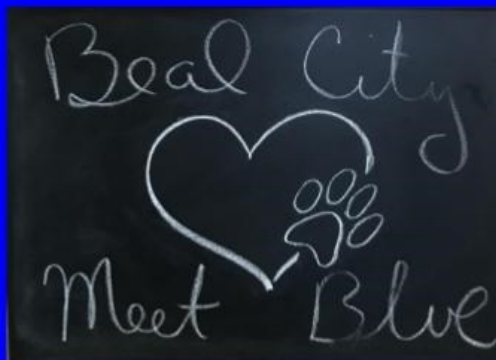 Beal City
Meet Blue